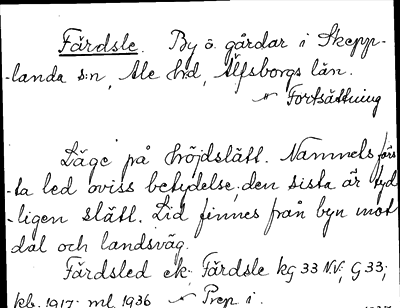 Färdsle. By ö. gårdar i Skepp-
-landa s:n, Ale hd, Älfsborgs län.
Fortsättning
Läge på höjdslätt. Namnets förs
-ta led oviss betydelse, den sista är tyd
-ligen slätt. Lid finnes från byn mot
dal och landsväg.
Färdsled ek. Färdsle kg 33 NV; G 33;
kb. 1917. ml 1936 Prep i.